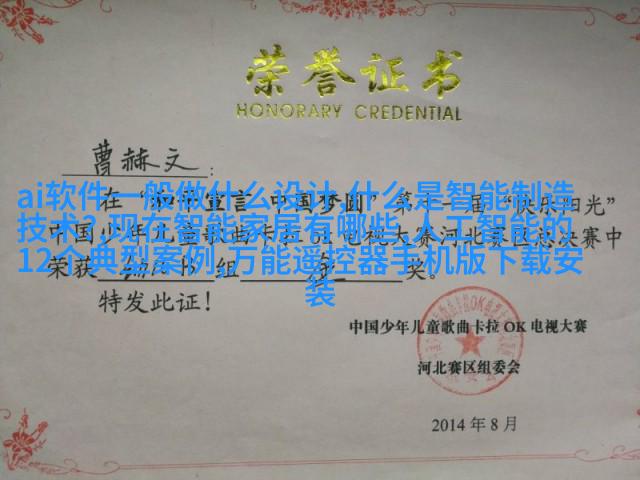 荣誉证书
HONORARY CREDENTIAL
曹赫文：
在 宣言 中国梦圆”第十一届“快乐阳光”
中国少年儿童歌曲卡拉OK电视大赛河北赛区总决赛中
荣获 组 奖。
特发此证!
ai软件一般做什么设计,什么是智能制造
技术?,现在智能家居有哪些,人工智能的
12个典型案例,万能遥控器手机版下载安
装
中国少年儿童歌曲卡拉OK电视大赛
河北赛区组委会
2014年8月